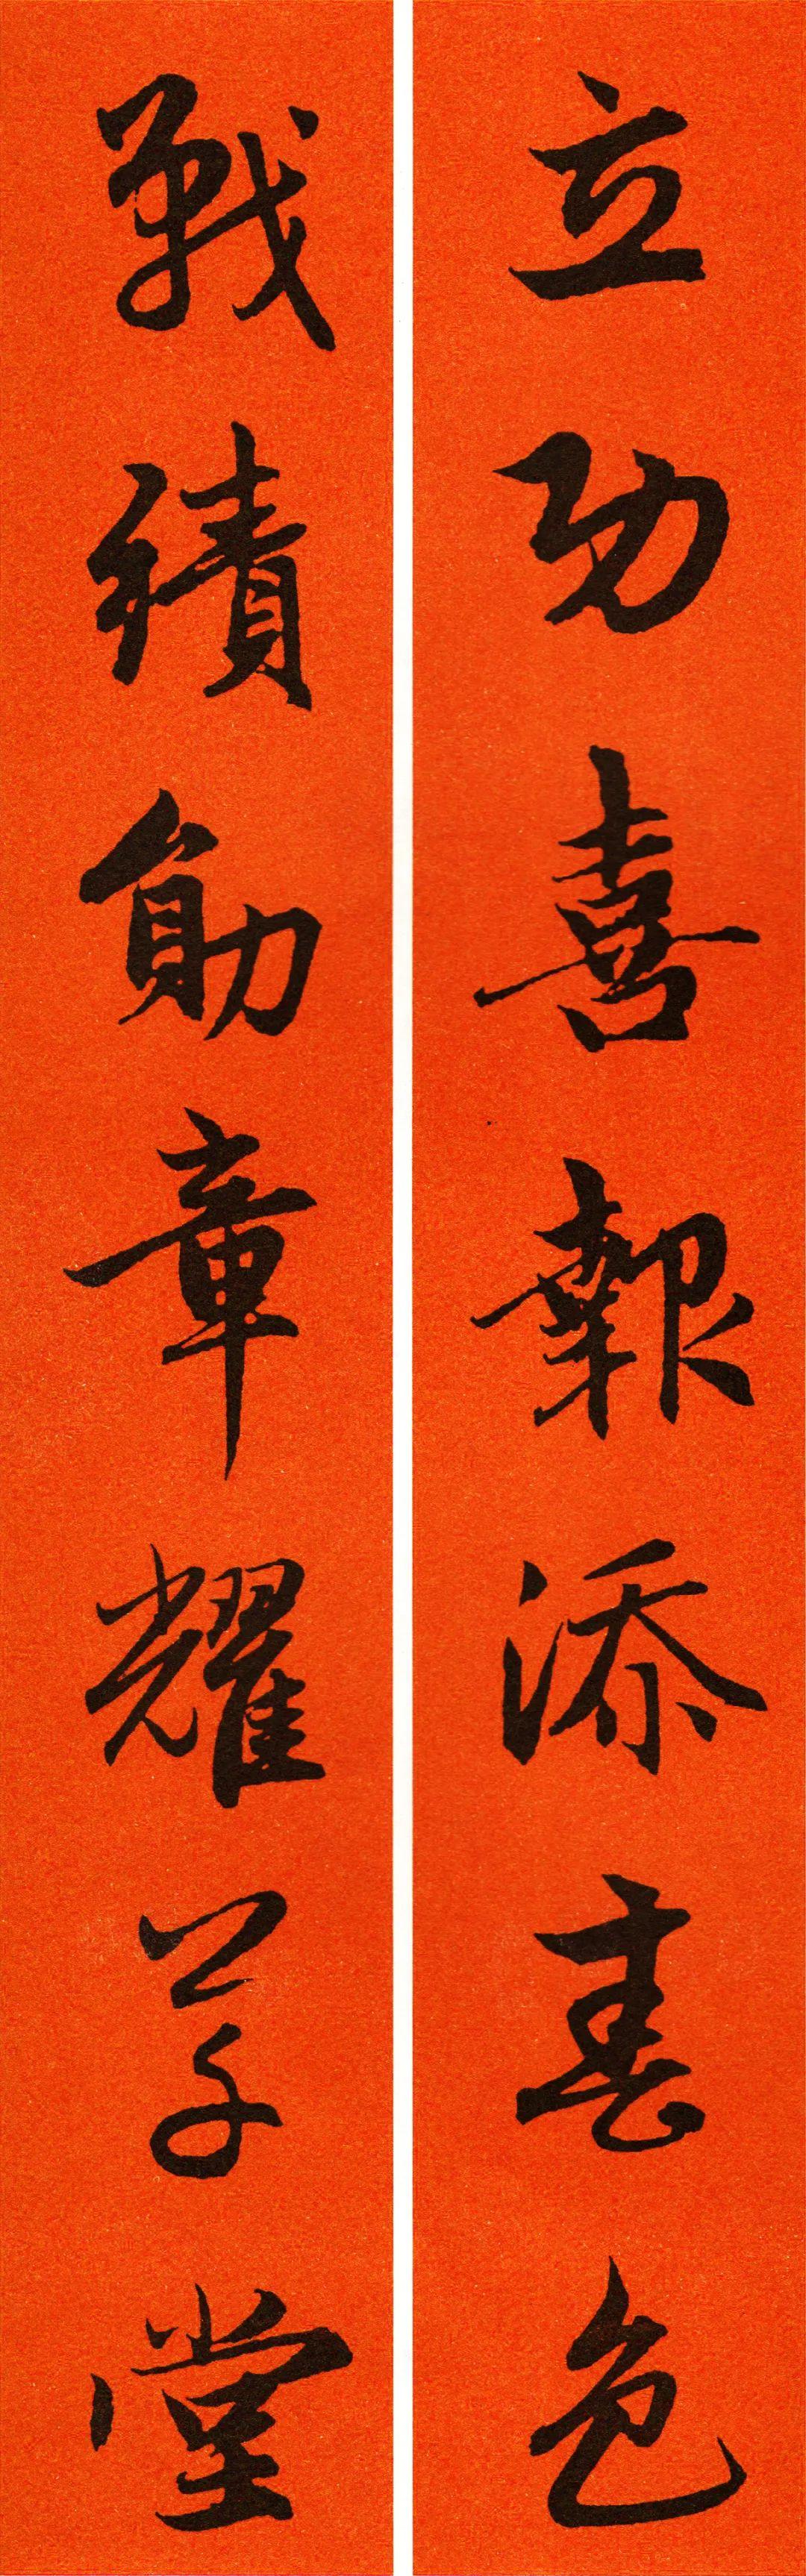 立功喜報添喜色
戰績勛章耀堂